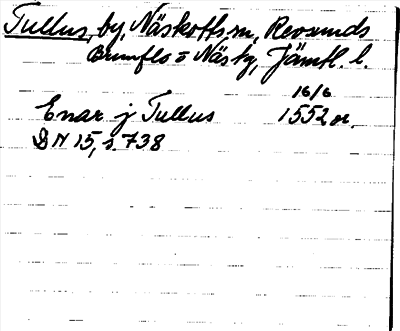 Tullus, by, Näskotts sn, Revsunds
Brunflo o Näs tg, Jämtl. l.
16/6
Enar j Tullus 1552 or.
DN 15, s. 738